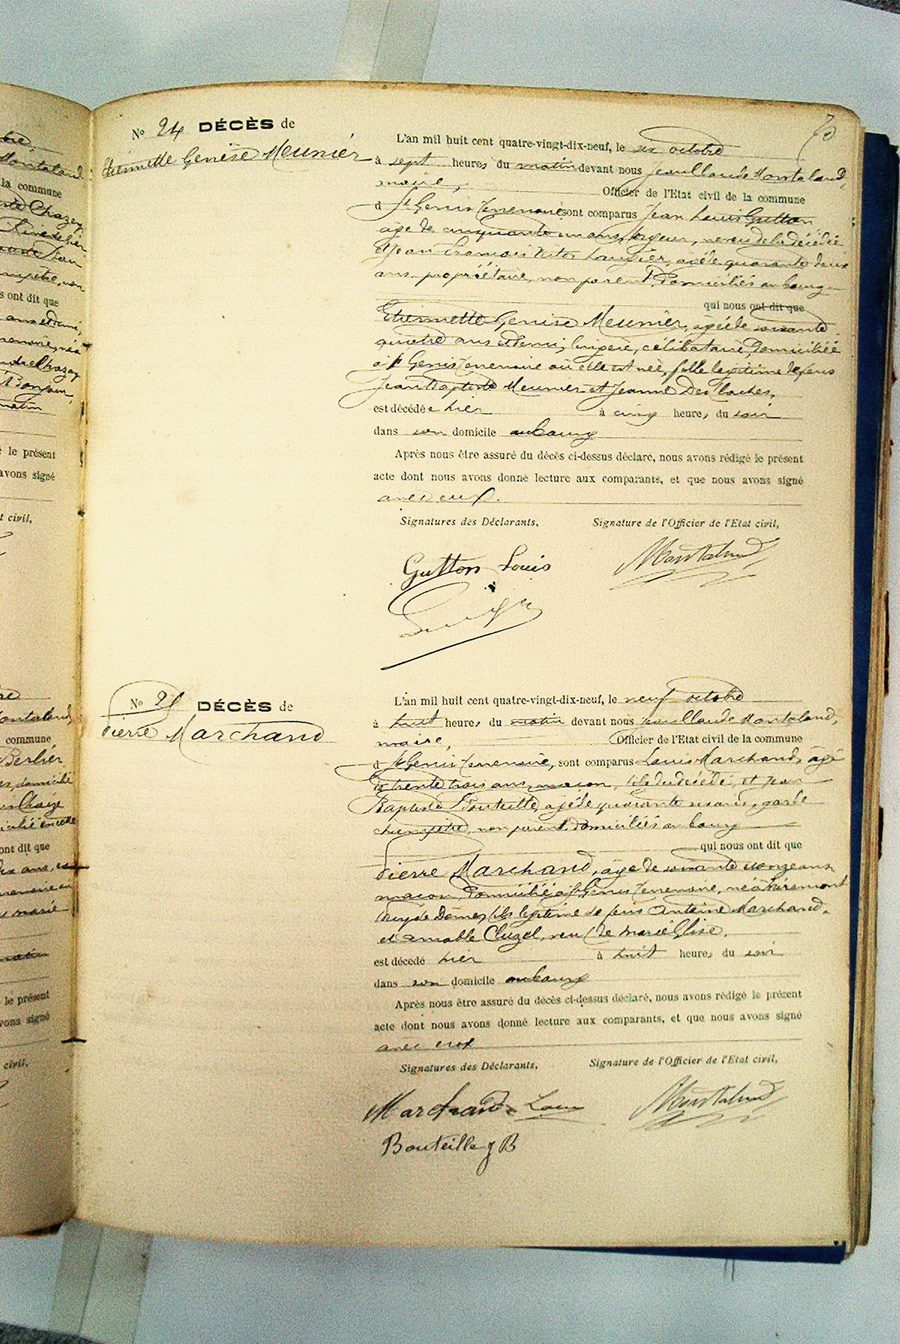 No 24 DÉCÈS de
Etiennette Genise Meunier
L'an mil huit cent quatre-vingt-dix-neuf, le six octobre
à sept heures du matin devant nous Jean Claude Montaland,
maire, Officier de l'Etat civil de la commune
d St Genis Terrenoire sont comparus Jean Louis Gutton
âgé de cinquante un ans, neveu de la décédée
et Jean François agé de quarante deux
ans propriétaire, non parent, domiciliés au bourg
qui nous ont dit que
Etiennette Genise Meunier, âgée de soixante
quatre ans et demi, lingère, célibataire, domiciliée
à St Genis Terrenoire où elle est née, fille légitime de feus
Jean Baptiste Meunier et Jeanne Des Flaches,
est décédée hier à cinq heures du soir
dans son domicile au bourg
Après nous être assuré du décès ci-dessus déclaré, nous avons rédigé le présent
acte dont nous avons donné lecture aux comparants, et que nous avons signé
avec eux.
Signatures des Déclarants, Signature de l'Officier de l'Etat civil,
Gutton Louis Montaland
No DÉCÈS de
Pierre Marchand
L'an mil huit cent quatre-vingt-dix-neuf, le neuf octobre
à huit heures du matin devant nous Jean Claude Montaland,
maire, Officier de l'Etat civil de la commune
d St Genis Terrenoire, sont comparus Louis Marchand, âgé
de trente trois ans, maçon, fils du décédé, et Jean
Baptiste Bouteille, agé de quarante ans, garde
champêtre, non parent, domiciliés au bourg
qui nous ont dit que
Pierre Marchand, âgé de soixante onze ans
maçon, domicilié à St Genis Terrenoire, né à
Puy de Dôme, fils légitime de feus Antoine Marchand,
et Amable Cluzel, veuf de Marie Glise,
est décédé hier à huit heures du soir
dans son domicile au bourg
Après nous être assuré du décès ci-dessus déclaré, nous avons rédigé le présent
acte dont nous avons donné lecture aux comparants, et que nous avons signé
avec eux
Signatures des Déclarants, Signature de l'Officier de l'Etat civil,
Marchand Louis Montaland
Bouteille J B